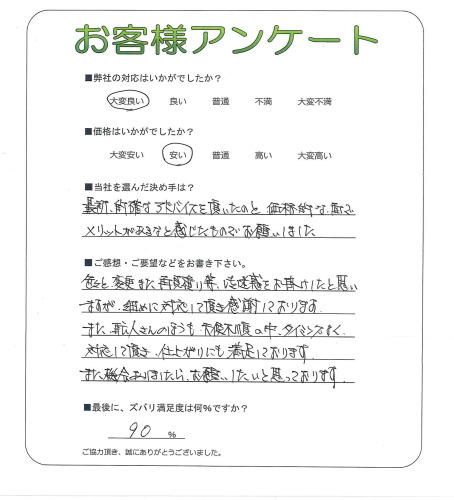 お客様アンケート
■弊社の対応はいかがでしたか?
大変良い 良い 普通 不満 大変不満
■価格はいかがでしたか?
大変安い 安い 普通 高い 大変高い
■当社を選んだ決め手は?
最初、的確なアドバイスを頂いたのと、価格的な面で
メリットがあるなと感じたものでお願いしました
■ご感想・ご要望などをお書き下さい。
色々と変更また再見積り等、ご迷惑をお掛けしたと思い
ますが、細めに対応して頂き感謝しております。
また、職人さんのほうも天候不順の中、タイミングよく
対応して頂き、仕上がりにも満足しております。
また機会ありましたら、お願いしたいと思っております。
■最後に、ズバリ満足度は何%ですか?
90 %
ご協力頂き、誠にありがとうございました。